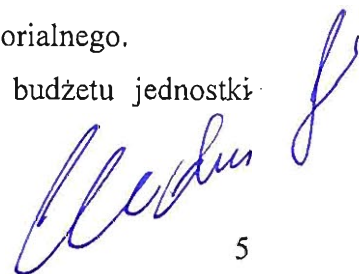 orialnego.
budżetu jednostki
5